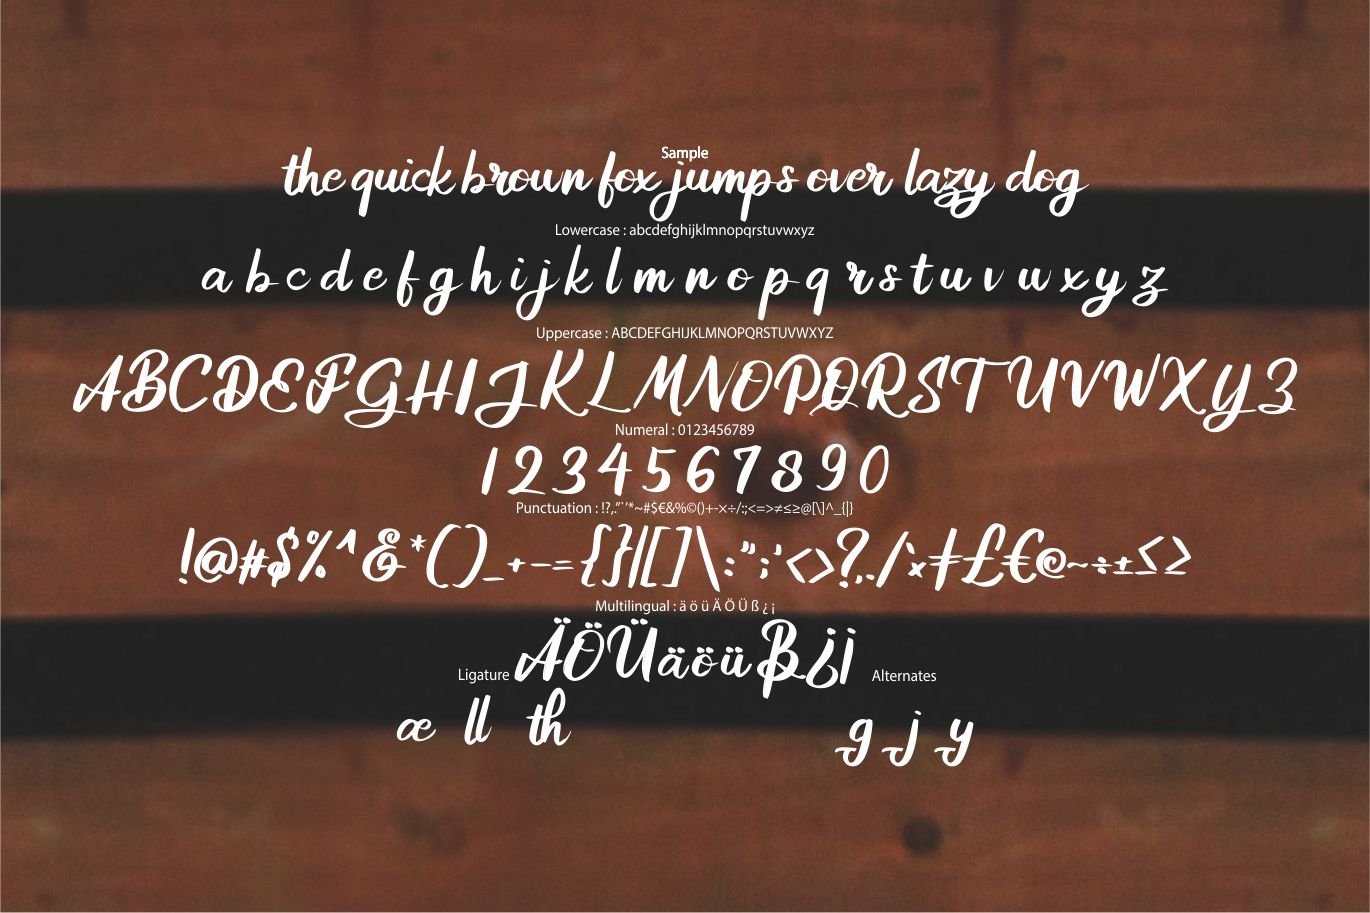 Sample
the quick brown fox jumps over lazy dog
Lowercase : abcdefghijklmnopqrstuvwxyz
a b c d e f g h i j k l m n o p q r s t u v w x y z
Uppercase : ABCDEFGHIJKLMNOPQRSTUVWXYZ
ABCDEFGHIJKLMNOPQRSTUVWXYZ
Numeral : 0123456789
1234567890
Punctuation : !?,.”“’‘*~#$€&%©()+-×÷/:;<=>≠≤≥@[\]^_{|}
!@#$%^&*()_+-={}|[]\:";'<>?,./`×≠£€©~÷±≤≥
Multilingual : ä ö ü Ä Ö Ü ß ¿ ¡
ÄÖÜäöüß¿¡
Ligature
æ ll th
Alternates
g j y